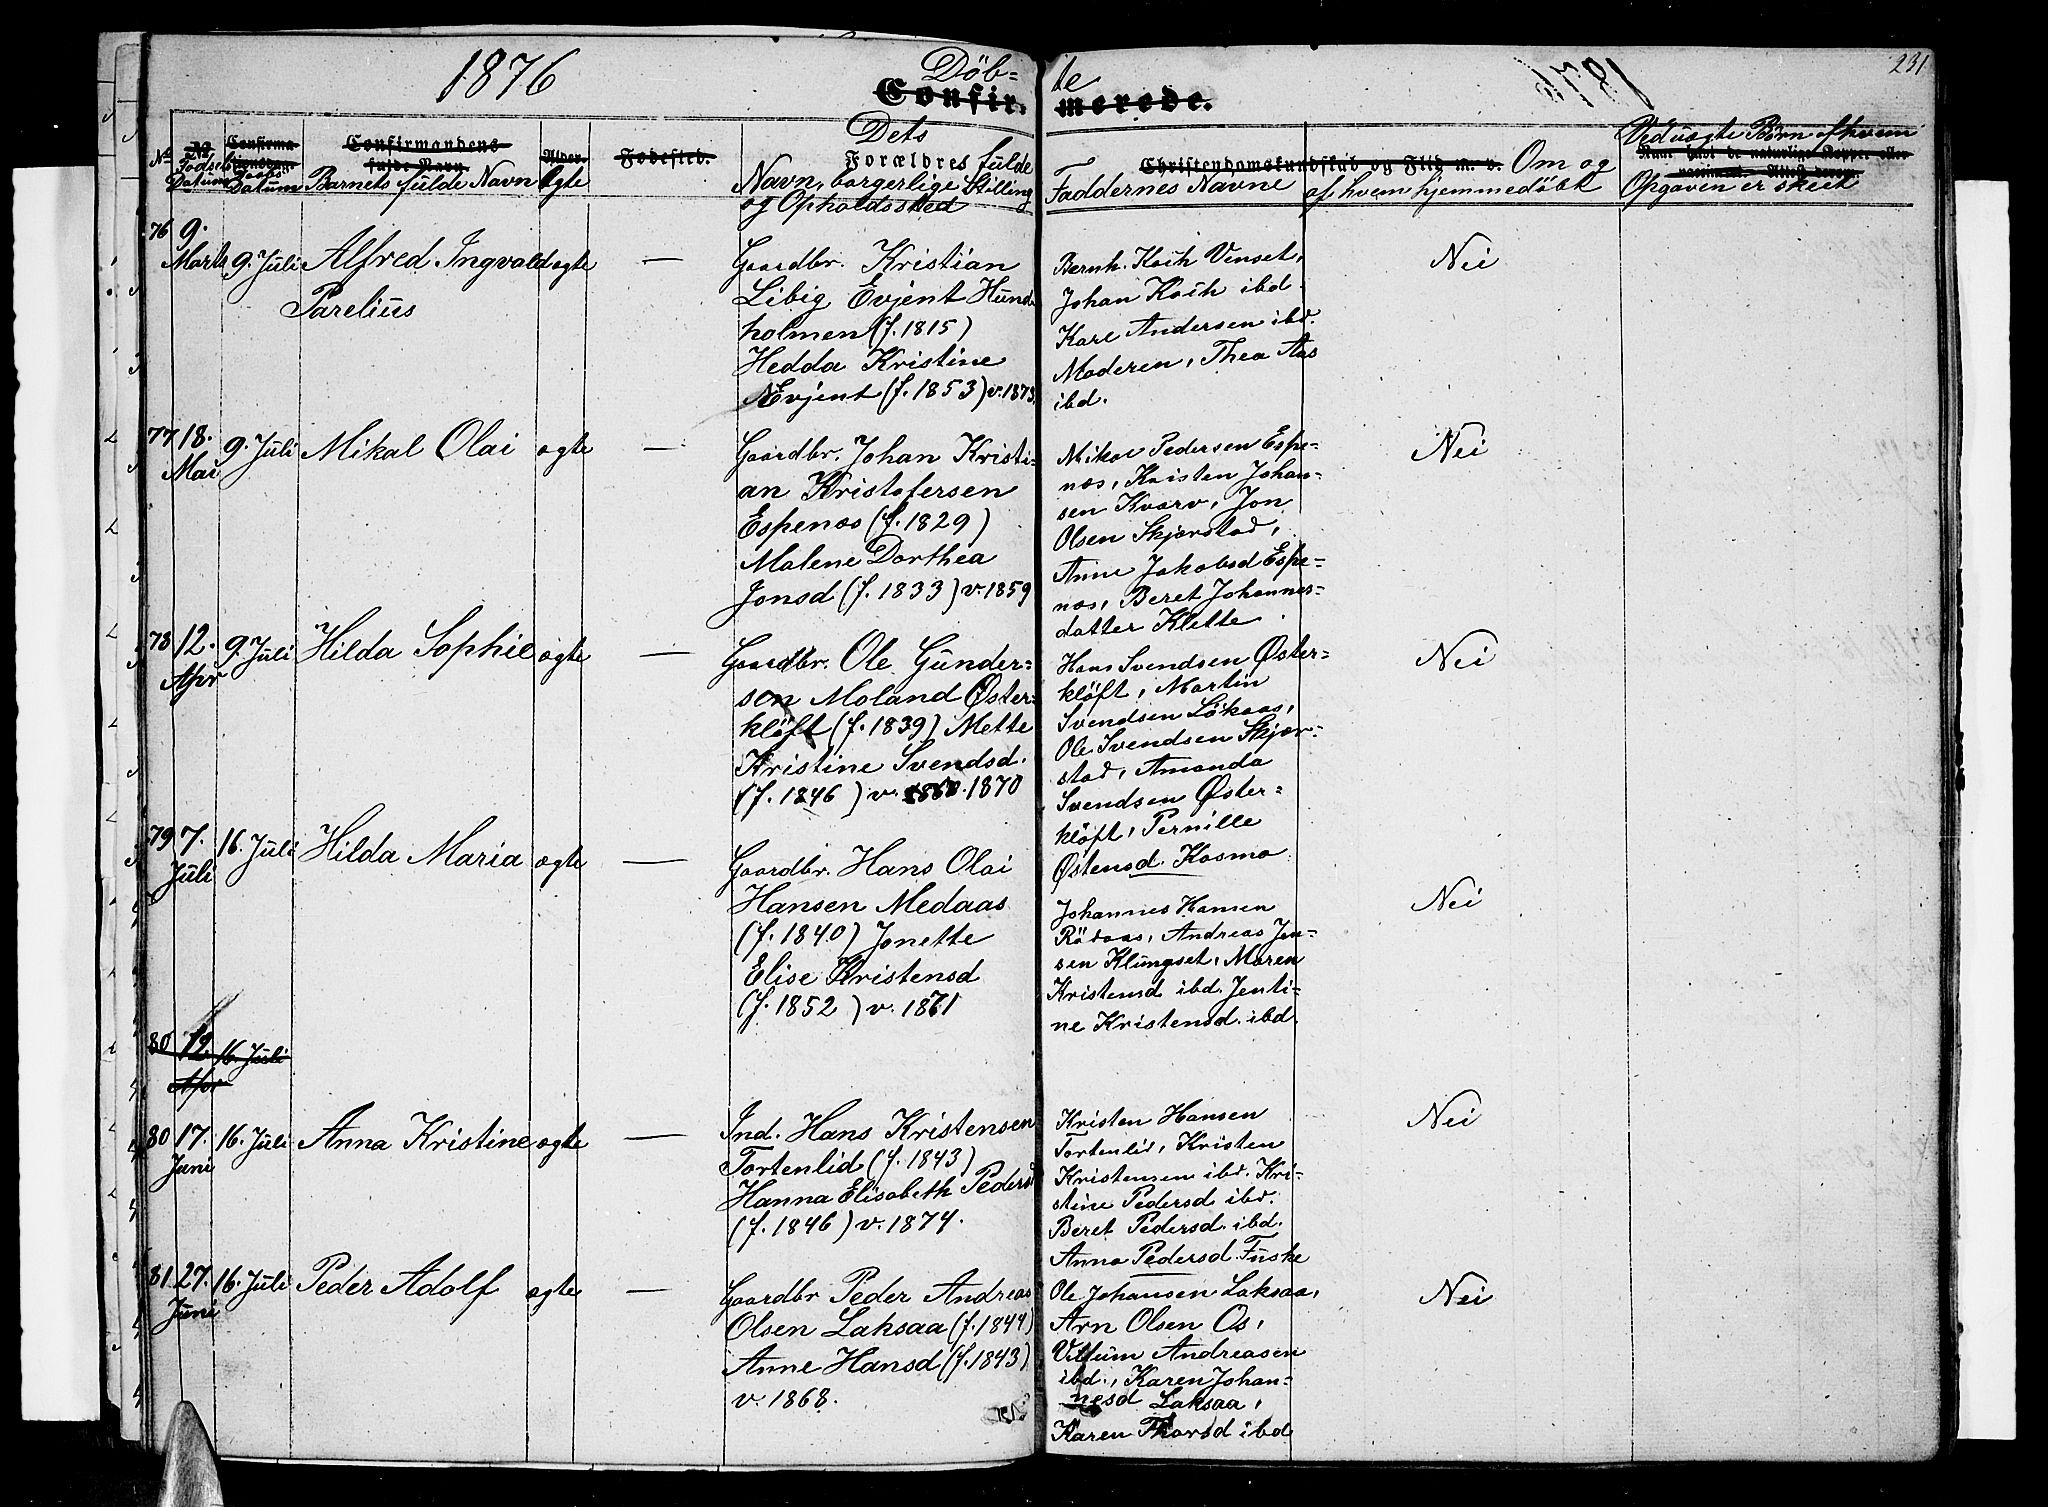 1876
Döb=
te
1876
231
Confir=
merede.
No
Födsels
Datum
Confirma
Daabs
Datum
Confirmandens
fulde Navn
Barnets fulde Navn
Alder.
Ægte
Fødested.
Dets
Forældres fulde
Navn, borgerlige Stilling
og Opholdssted
Christendomskundskab og Flid m. v.
Faddernes Navne
Om og
af hvem hjemmedöbt
Ved uægte Börn af hvem
Opgaven er skeet
76 9.
Marts 9. Juli Alfred Ingvald ægte —
Parelius
Gaardbr. Kristian
Libig Evjent Hund
holmen (f. 1815)
Hedda Kristine
Evjent (f. 1853) v. 1873
Bernh. Koch Venset,
Johan Koch ibd.
Karl Andersen ibd.
Moderen, Thea Aas
ibd.
Nei
77 18.
Mai 9. Juli Mikal Olai ægte —
Gaardbr. Johan Kristi=
an Kristofersen
Espenæs (f. 1829)
Malene Dorthea
Jonsd (f. 1833) v. 1859
Mikal Pedersen Espe=
næs, Kristen Johan=
sen Kvarv, Jon
Olsen Skjærstad,
Anne Jakobsd Espe=
næs, Beret Johannes=
datter Klette
Nei
78 12.
Apr 9. Juli Hilda Sophie ægte —
Gaardbr. Ole Gunder=
sen Moland Øster=
klöft (f. 1839) Mette
Kristine Svendsd.
(f. 1846) v. 1870
Hans Svendsen Øster=
klöft, Martin
Svendsen Lökaas,
Ole Svendsen Skjær=
stad, Amanda
Svendsen Øster=
klöft, Pernille
Østensd. Kosmo
Nei
79 7.
Juli 16. Juli Hilda Maria ægte —
Gaardbr. Hans Olai
Hansen Medaas
(f. 1840) Jonette
Elise Kristensd
(f. 1852) v. 1871
Johannes Hansen
Rödaas, Andreas Jen=
sen Klungset, Maren
Kristensd ibd. Jenti=
ne Kristensd. ibd.
Nei
80 12. 16. Juli
Apr
80 17.
Juni 16. Juli Anna Kristine ægte —
Ind. Hans Kristensen
Tortenlid (f. 1843)
Hanna Elisabeth Pedersd
(f. 1846) v. 1874.
Kristen Hansen
Tortenlid, Kristen
Kristensen ibd. Kri=
stine Pedersd ibd.
Beret Pedersd. ibd.
Anna Pedersd. Fuske
Nei
81 27.
Juni 16. Juli Peder Adolf ægte —
Gaardbr Peder Andreas
Olsen Laksaa (f. 1844)
Anne Hansd (f. 1843)
v. 1868.
Ole Johansen Laksaa,
Arn Olsen Os,
Villum Andreasen
ibd., Karen Johan=
nesd Laksaa,
Karen Thorsd ibd
Nei